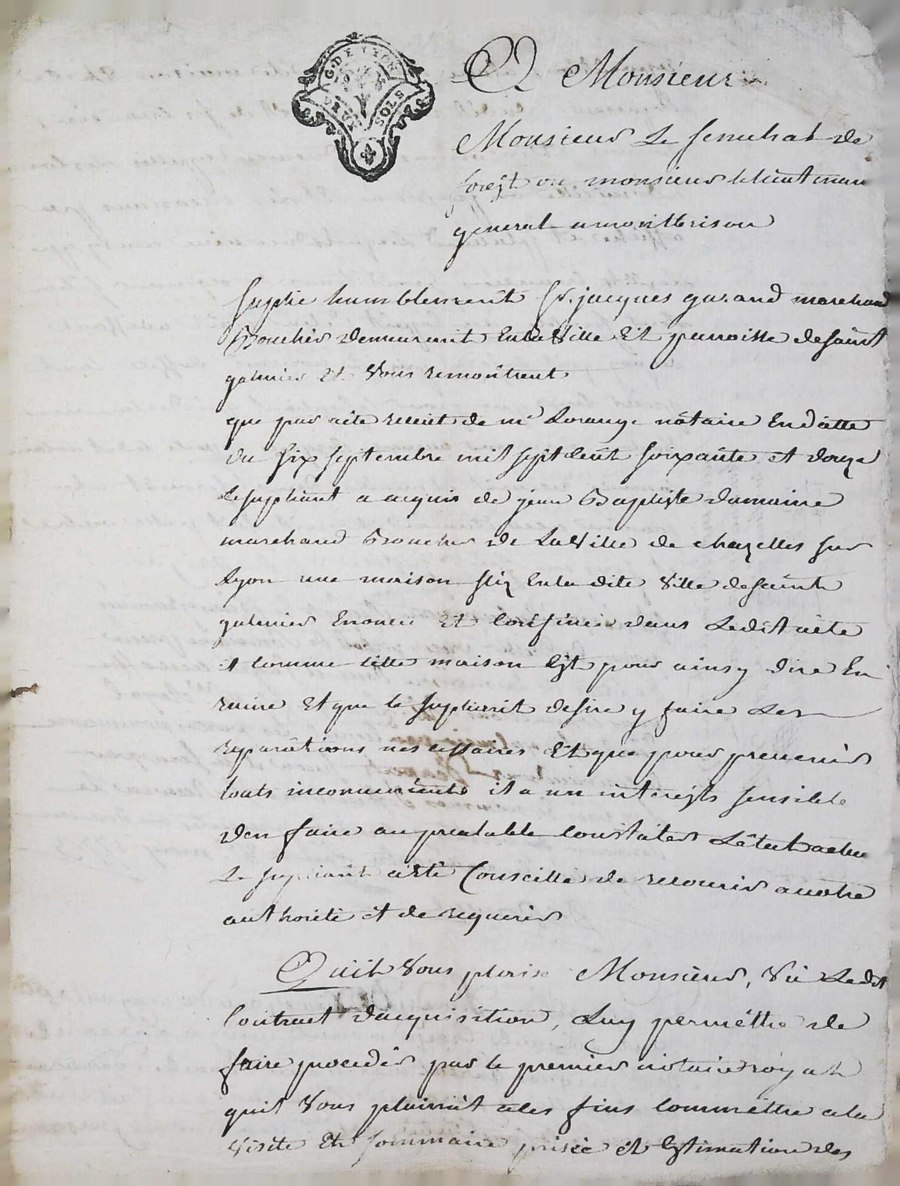 G. DE LYON
DEUX SOLS
A Monsieur
Monsieur Le senechal de
forest ou monsieur le lieutenan
general a montbrison
suplie humblement Sr. jacques garand marchand
Boucher demeurant En la Ville Et parroisse de saint
galmier Et Vous remontrent
que par acte receut de me Lorange nôtaire En datte
du six septembre mil sept Cent soixante et douze
Le supliant a acquis de jean Baptiste damaine
marchand Boucher de La Ville de chazelles sur
Lyon une maison size En la dite Ville de saint
galmier Enoncé Et Confinée dans Ledit acte
et comme cette maison Est pour ainsy dire En
ruine Et que le supliant desire y faire Les
reparations nescessaires Et que pour prevenir
touts inconvenients il a un interest sensible
d'en faire au prealable Constater L'état actuel
Le supliant a été Conseillé de recourir a votre
authorité et de requerir
Qu'il Vous plaise Monsieur, Vu Ledit
Contract d'acquisition, Luy permettre de
faire proceder par le premier notaire royal
quil Vous plairrat a les fins Commettre a la
Visite Et sommaire prisée et Estimation des